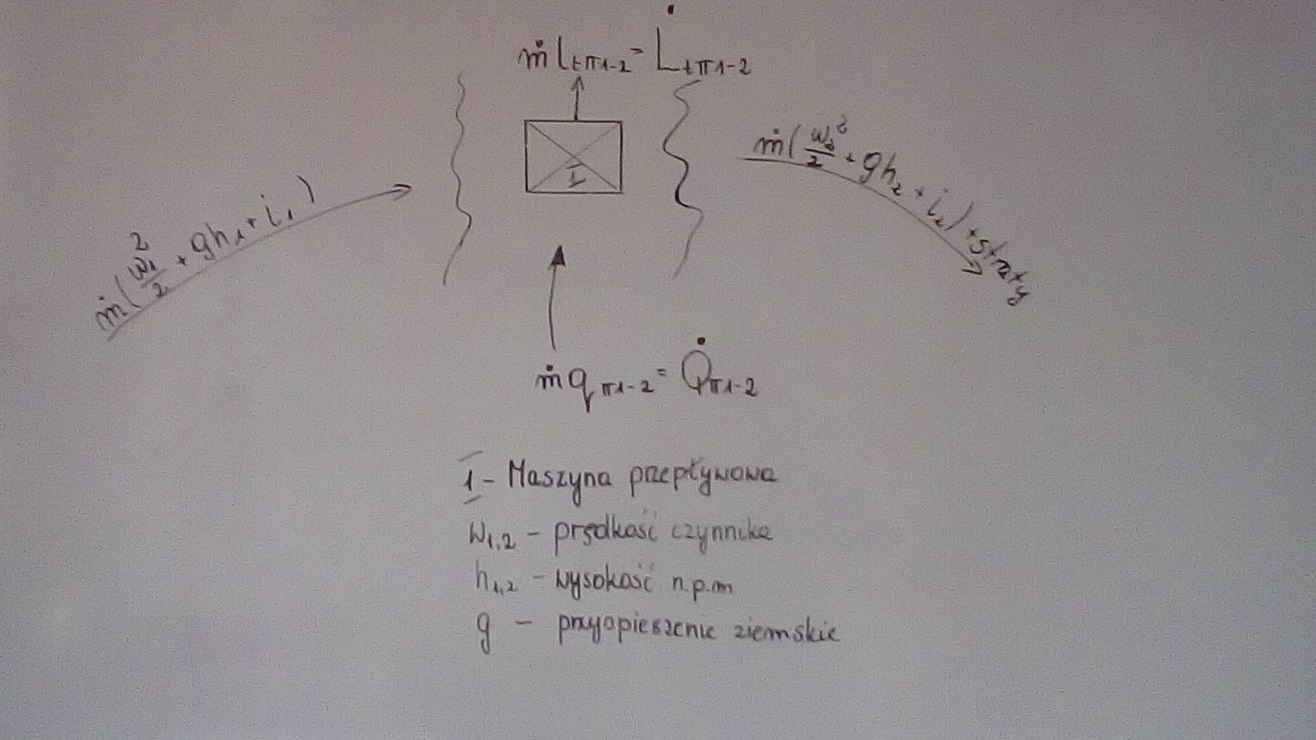 ṁ l_tπ1-2 = L̇_tπ1-2
ṁ(w₁²/2 + gh₁ + i₁)
1
ṁ(w₂²/2 + gh₂ + i₂) + straty
ṁ q_π1-2 = Q̇_π1-2
1 - Maszyna przepływowa
w₁,₂ - prędkość czynnika
h₁,₂ - wysokość n.p.m
g - przyspieszenie ziemskie